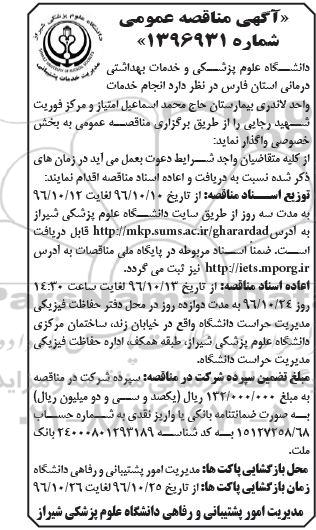 «آگهی مناقصه عمومی
شماره ۱۳۹۶۹۳۱»
دانشگاه علوم پزشکی شیراز
مدیریت خدمات پشتیبانی
دانشـگاه علوم پزشـکی و خدمات بهداشتی
درمانی استان فارس در نظر دارد انجام خدمات
واحد لاندری بیمارستان حاج محمد اسماعیل امتیاز و مرکز فوریت
شـهید رجایی را از طریق برگزاری مناقصـه عمومی به بخش
خصوصی واگذار نماید:
از کلیه متقاضیان واجد شـرایط دعوت بعمل می آید در زمان های
ذکر شده نسبت به دریافت و اعاده اسناد مناقصه اقدام نمایند:
توزیع اسـناد مناقصه: از تاریخ ۹۶/۱۰/۱۰ لغایت ۹۶/۱۰/۱۲
به مدت سه روز از طریق سایت دانشـگاه علوم پزشکی شیراز
به آدرس http://mkp.sums.ac.ir/gharardad قابل دریافت
اسـت. ضمنا اسـناد مربوطه در پایگاه ملی مناقصات به آدرس
http://iets.mporg.ir نیز ثبت می گردد.
اعاده اسناد مناقصه: از تاریخ ۹۶/۱۰/۱۳ لغایت ساعت ۱۴:۳۰
روز ۹۶/۱۰/۲۴ به مدت دوازده روز در محل دفتر حفاظت فیزیکی
مدیریت حراست دانشگاه واقع در خیابان زند، ساختمان مرکزی
دانشگاه علوم پزشکی شیراز، طبقه همکف، اداره حفاظت فیزیکی
مدیریت حراست دانشگاه.
مبلغ تضمین سپرده شرکت در مناقصه: سپرده شرکت در مناقصه
مبلغ ۱۳۲/۰۰۰/۰۰۰ ریال (یکصد و سـی و دو میلیون ریال)
بـه صورت ضمانتنامه بانکی یا واریز نقدی به شـماره حسـاب
۱۵۱۲۷۲۵۸/۶۸ بـه کد شناسـه ۲۴۰۰۰۸۰۱۲۹۳۱۸۹ بانک
ملت.
محل بازگشایی پاکت ها: مدیریت امور پشتیبانی و رفاهی دانشگاه
زمان بازگشایی پاکت ها: از تاریخ ۹۶/۱۰/۲۵ لغایت ۹۶/۱۰/۲۶
مدیریت امور پشتیبانی و رفاهی دانشگاه علوم پزشکی شیراز